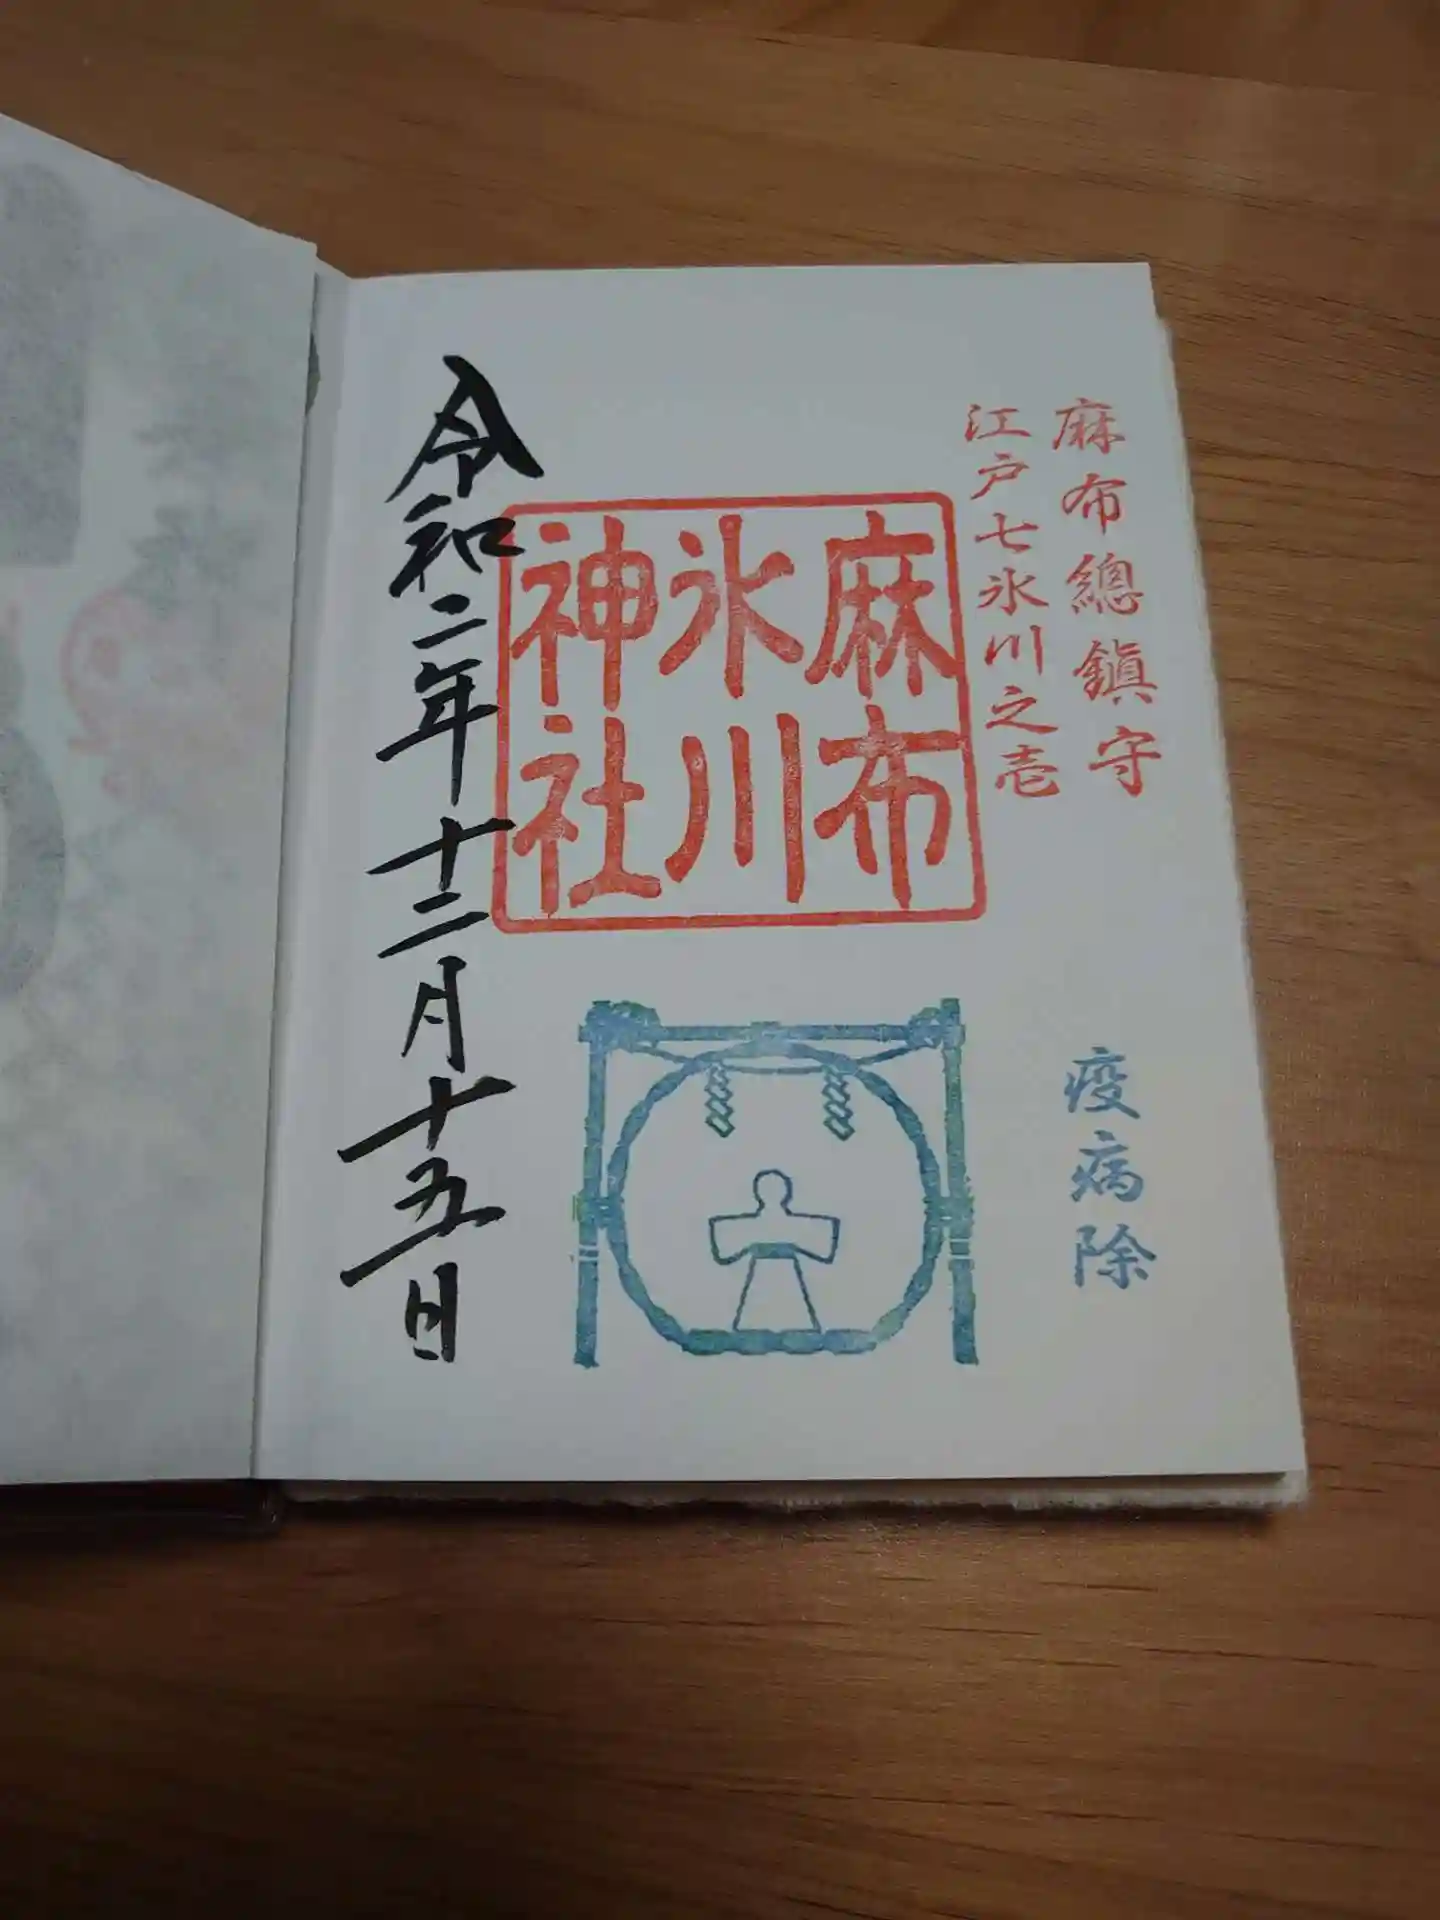 麻布總鎭守
江戸七氷川之壱
麻布
氷川
神社
疫病除
令和二年十二月十五日